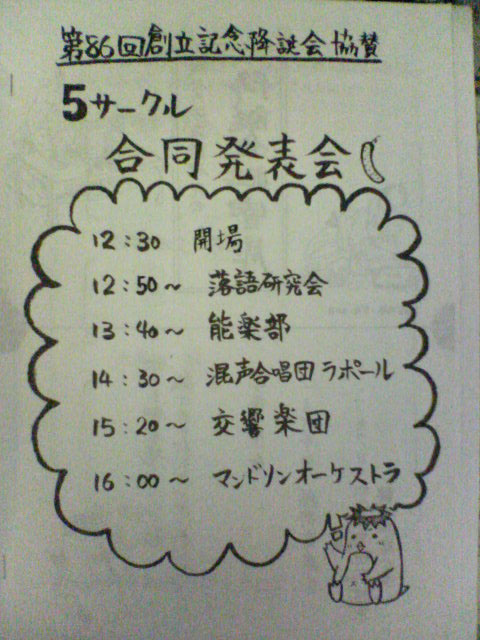 第86回創立記念降誕会協賛
5サークル
合同発表会
12:30 開場
12:50〜 落語研究会
13:40〜 能楽部
14:30〜 混声合唱団ラポール
15:20〜 交響楽団
16:00〜 マンドリンオーケストラ